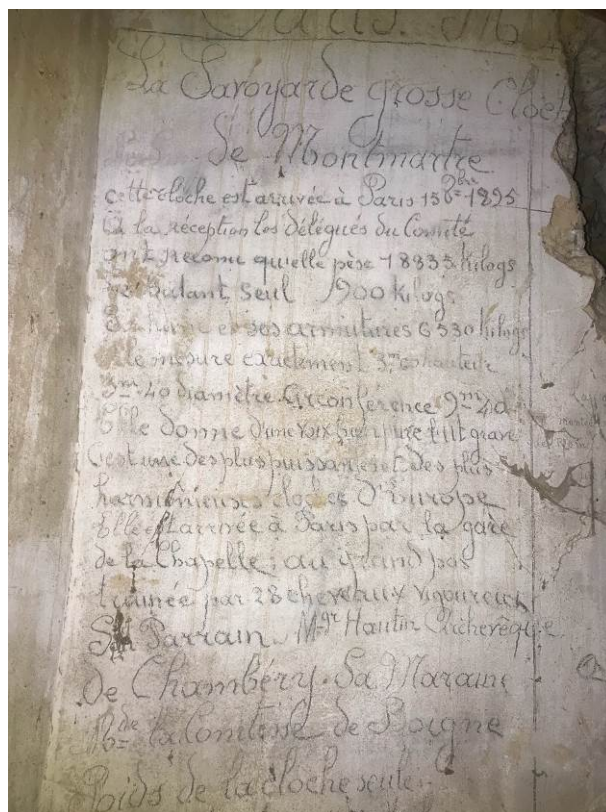 Paris. M
La Savoyarde grosse Cloch
de Montmartre
cette cloche est arrivée à Paris 15 8bre 1895
à la réception les Délégués du Comité
ont reconu qu'elle pèse 18835 Kilogs
le batant seul 900 Kilogs
et ses armatures 6530 Kilogs
Elle mesure exactement 3m
3m-40 diamètre. Circonférence 9m
Elle donne d'une voix grave
C'est une des plus puissantes et des plus
harmonieuses cloches d'Europe
Elle est arrivée à Paris par la gare
de la Chapelle, au grand pas
trainée par 28 chevaux vigoureux
Son Parrain Mgr Hautin Archevêque
De Chambéry. Sa Maraine
la Comtesse de Boigne
Poids de la cloche seule